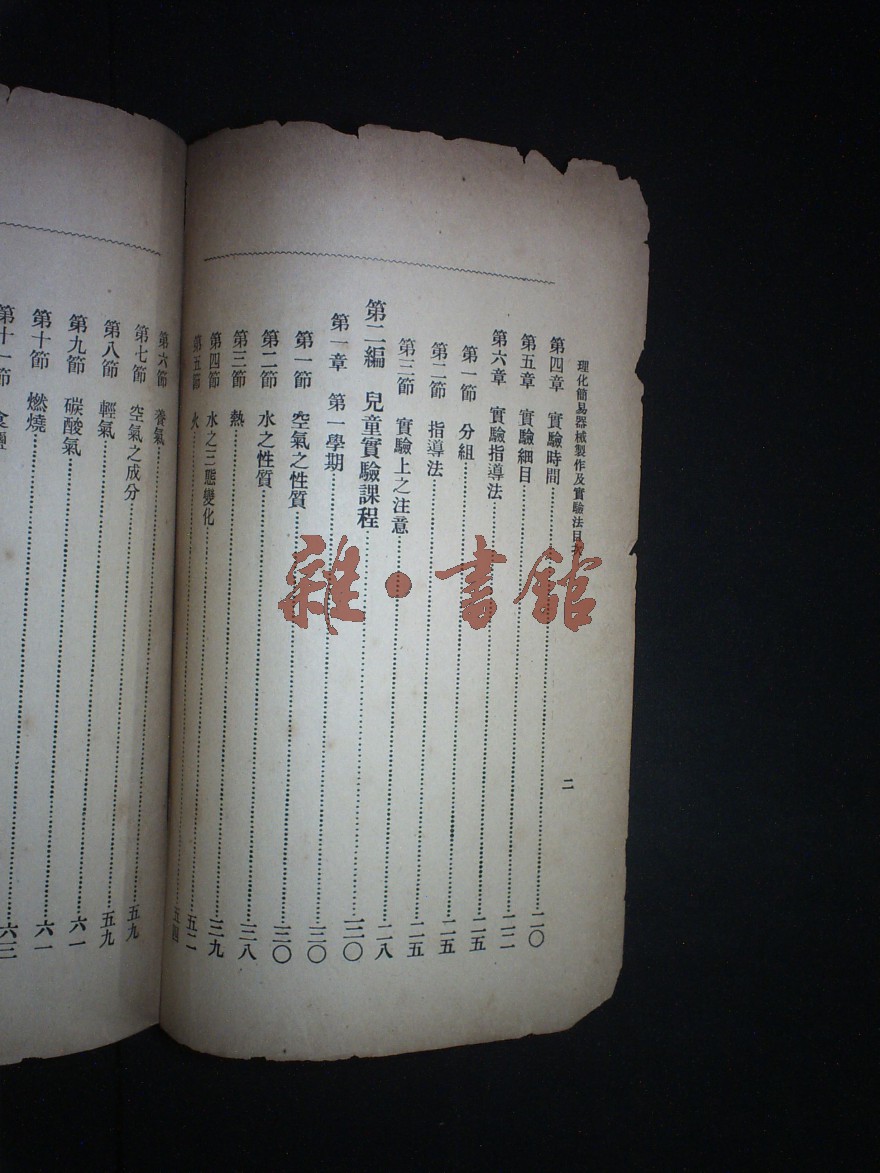 理化簡易器械製作及實驗法目
二
第四章 實驗時間……二〇
第五章 實驗細目……二二
第六章 實驗指導法……二五
第一節 分組……二五
第二節 指導法……二五
第三節 實驗上之注意……二八
第二編 兒童實驗課程……三〇
第一章 第一學期……三〇
第一節 空氣之性質……三〇
第二節 水之性質……三八
第三節 熱……三九
第四節 水之三態變化……五二
第五節 火……五四
第六節 養氣……五九
第七節 空氣之成分……五九
第八節 輕氣……六一
第九節 碳酸氣……六一
第十節 燃燒……六三
第十一節 食鹽
雜·書館